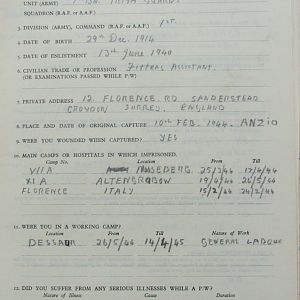 UNIT (ARMY) 1 BN. IRISH GUARDS
SQUADRON (R.A.F. or A.A.F.)
3. DIVISION (ARMY), COMMAND (R.A.F. or A.A.F.) 1ST.
4. DATE OF BIRTH 29th Dec. 1914
5. DATE OF ENLISTMENT 13th June 1940
6. CIVILIAN TRADE OR PROFESSION Fitters Assistant.
(OR EXAMINATIONS PASSED WHILE P/W)
7. PRIVATE ADDRESS 12. FLORENCE. RD SANDERSTEAD
CROYDON SURREY. ENGLAND
8. PLACE AND DATE OF ORIGINAL CAPTURE 10TH FEB. 1944. ANZIO
9. WERE YOU WOUNDED WHEN CAPTURED? YES
10. MAIN CAMPS OR HOSPITALS IN WHICH IMPRISONED.
Camp No. Location From Till
VIIA 17/4/44
XI A ALTENGRABOW 19/4/44 26/5/44
FLORENCE ITALY 15/2/44 24/2/44
11. WERE YOU IN A WORKING CAMP?
Location From Till Nature of Work
DESSAU 26/5/44 14/4/45 GENERAL LABOUR
12. DID YOU SUFFER FROM ANY SERIOUS ILLNESSES WHILE A P/W?
Nature of Illness Cause Duration